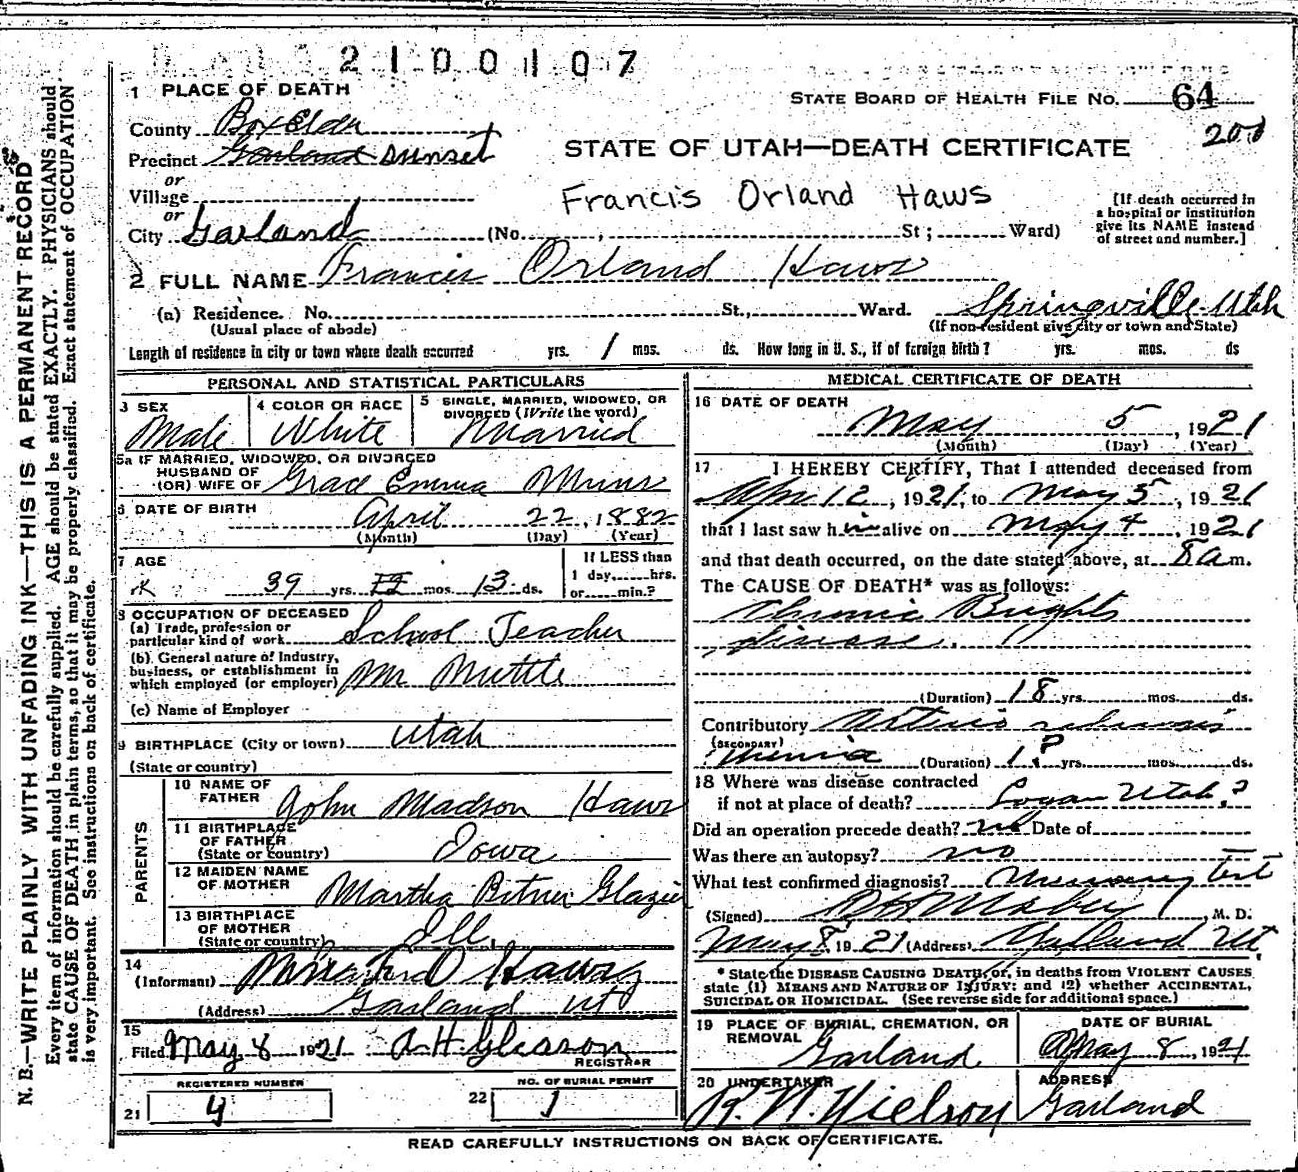 2100107
1 PLACE OF DEATH
STATE BOARD OF HEALTH FILE NO. 64
200
County Box Elder
Precinct Garland Sunset
or
Village
or
City Garland (No. , St; Ward)
STATE OF UTAH—DEATH CERTIFICATE
Francis Orland Haws
[If death occurred in
a hospital or institution
give its NAME instead
of street and number.]
2 FULL NAME Francis Orland Haws
(a) Residence. No. St., Ward. Springville Utah
(Usual place of abode) (If non-resident give city or town and State)
Length of residence in city or town where death occurred yrs. 1 mos. ds. How long in U. S., if of foreign birth? yrs. mos. ds
PERSONAL AND STATISTICAL PARTICULARS
3 SEX
Male
4 COLOR OR RACE
White
5 SINGLE, MARRIED, WIDOWED, OR
DIVORCED (Write the word)
Married
5a IF MARRIED, WIDOWED, OR DIVORCED
HUSBAND OF
(OR) WIFE OF Grace Emma
6 DATE OF BIRTH April 22, 1882
(Month) (Day) (Year)
7 AGE
39 yrs. mos. 13 ds.
If LESS than
1 day, hrs.
or min.?
8 OCCUPATION OF DECEASED
(a) Trade, profession or
particular kind of work School Teacher
(b) General nature of Industry,
business, or establishment in
which employed (or employer)
(c) Name of Employer
9 BIRTHPLACE (City or town) Utah
(State or country)
PARENTS
10 NAME OF
FATHER John Madson Haws
11 BIRTHPLACE
OF FATHER
(State or country) Iowa
12 MAIDEN NAME
OF MOTHER Martha Bitner Glazier
13 BIRTHPLACE
OF MOTHER
(State or country) Ill.
14
(Informant) O Haws
(Address) Garland
15
Filed May 8 1921 A H Gleason
REGISTRAR
REGISTERED NUMBER
21 4
NO. OF BURIAL PERMIT
22 1
MEDICAL CERTIFICATE OF DEATH
16 DATE OF DEATH
May 5, 1921
(Month) (Day) (Year)
17 I HEREBY CERTIFY, That I attended deceased from
Apr 12, 1921, to May 5, 1921
that I last saw him alive on May 4, 1921
and that death occurred, on the date stated above, at 8 a m.
The CAUSE OF DEATH* was as follows:
Chronic Brights
disease.
(Duration) 18 yrs. mos. ds.
Contributory
(SECONDARY)
(Duration) 1? yrs. mos. ds.
18 Where was disease contracted
if not at place of death? Logan Utah?
Did an operation precede death? no Date of
Was there an autopsy? no
What test confirmed diagnosis? test
(Signed) , M. D.
May 8, 1921 (Address) Garland Ut.
* State the DISEASE CAUSING DEATH, or, in deaths from VIOLENT CAUSES
state (1) MEANS AND NATURE OF INJURY; and (2) whether ACCIDENTAL,
SUICIDAL OR HOMICIDAL. (See reverse side for additional space.)
19 PLACE OF BURIAL, CREMATION, OR
REMOVAL Garland
DATE OF BURIAL
May 8, 1921
20 UNDERTAKER
Nielson
ADDRESS
Garland
READ CAREFULLY INSTRUCTIONS ON BACK OF CERTIFICATE.
N. B.—WRITE PLAINLY WITH UNFADING INK—THIS IS A PERMANENT RECORD
Every item of information should be carefully supplied. AGE should be stated EXACTLY. PHYSICIANS should
state CAUSE OF DEATH in plain terms, so that it may be properly classified. Exact statement of OCCUPATION
is very important. See instructions on back of certificate.